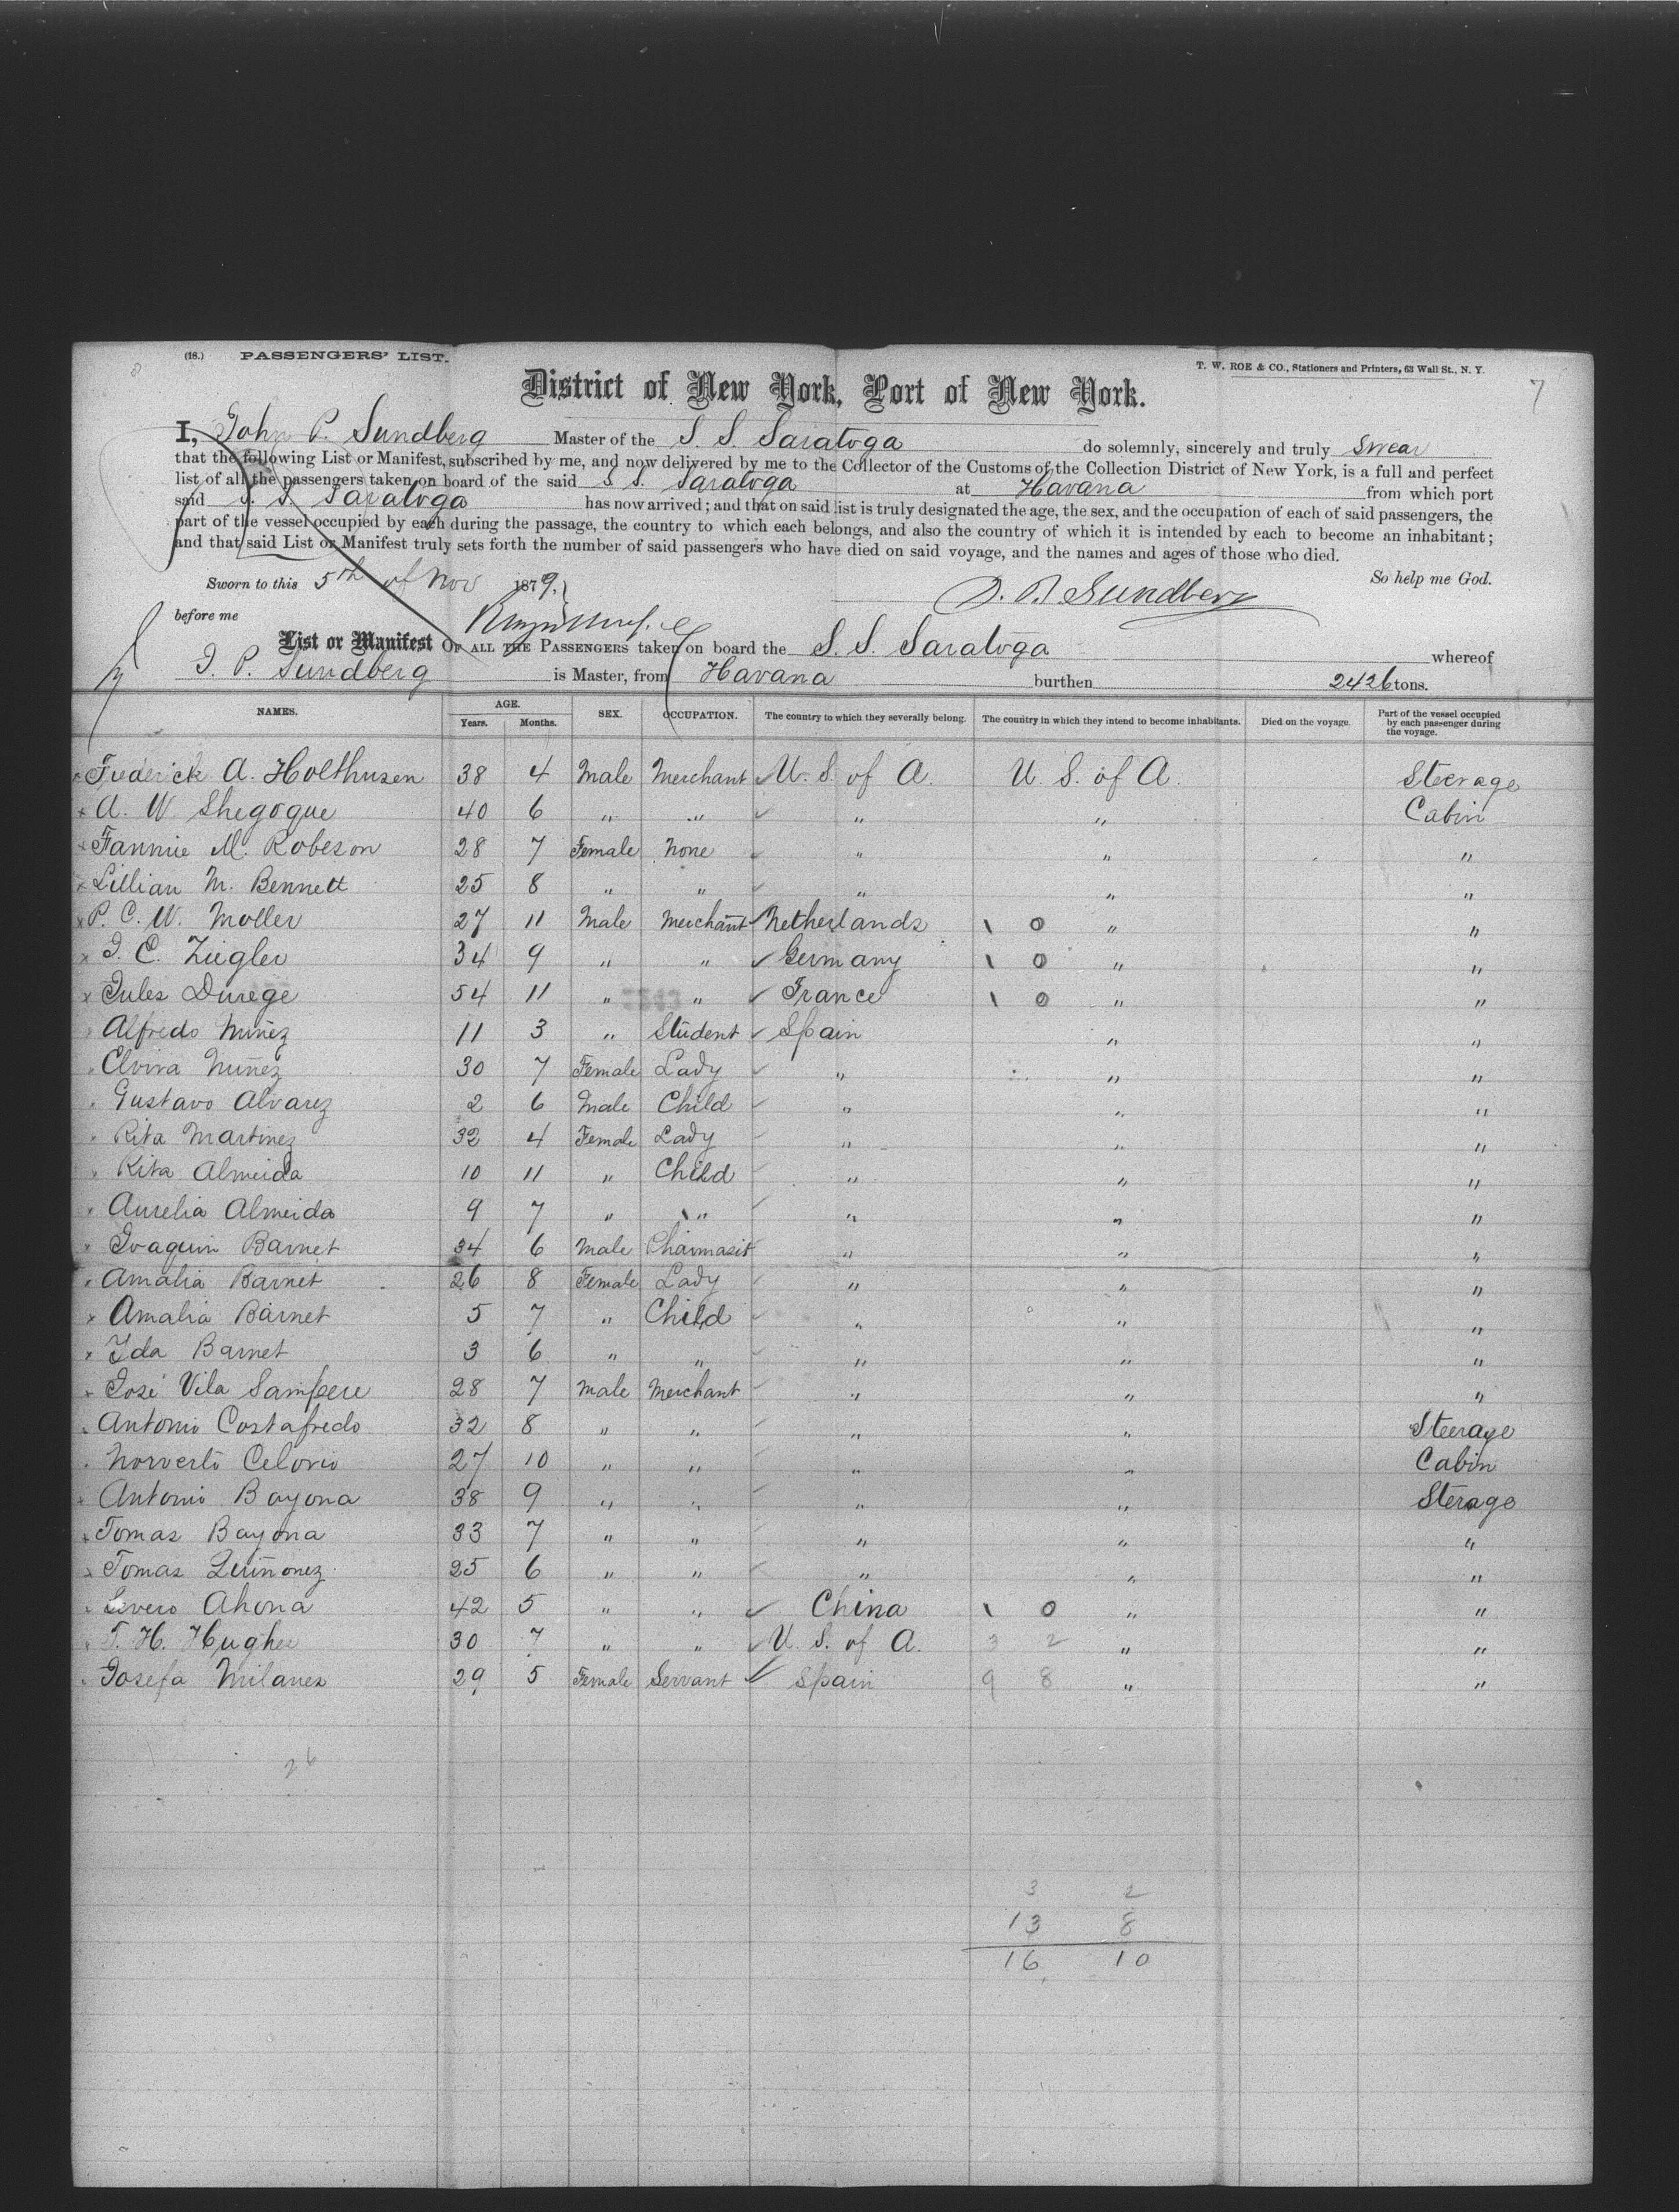 (18.) PASSENGERS' LIST.
T. W. ROE & CO., Stationers and Printers, 63 Wall St., N. Y.
7
District of New York, Port of New York.
I, John P. Sundberg Master of the S. S. Saratoga do solemnly, sincerely and truly Swear
that the following List or Manifest, subscribed by me, and now delivered by me to the Collector of the Customs of the Collection District of New York, is a full and perfect
list of all the passengers taken on board of the said S. S. Saratoga at Havana from which port
said S. S. Saratoga has now arrived; and that on said list is truly designated the age, the sex, and the occupation of each of said passengers, the
part of the vessel occupied by each during the passage, the country to which each belongs, and also the country of which it is intended by each to become an inhabitant;
and that said List or Manifest truly sets forth the number of said passengers who have died on said voyage, and the names and ages of those who died.
Sworn to this 5th of Nov 1879. So help me God.
J. P. Sundberg
before me
List or Manifest OF ALL THE PASSENGERS taken on board the S. S. Saratoga whereof
J. P. Sundberg is Master, from Havana burthen 2426 tons.
NAMES. AGE. Years. Months. SEX. OCCUPATION. The country to which they severally belong. The country in which they intend to become inhabitants. Died on the voyage. Part of the vessel occupied by each passenger during the voyage.
Frederick A. Holthusen 38 4 Male Merchant U. S. of A. U. S. of A. Steerage
A. W. Shegogue 40 6 " " " " Cabin
Fannie M. Robeson 28 7 Female None " " "
Lillian M. Bennett 25 8 " " " " "
P. C. W. Moller 27 11 Male Merchant Netherlands 1 0 " "
J. C. Ziegler 34 9 " " Germany 1 0 " "
Jules Durege 54 11 " " France 1 0 " "
Alfredo Nuñez 11 3 " Student Spain " "
Elvira Nuñez 30 7 Female Lady " " "
Gustavo Alvarez 2 6 Male Child " " "
Rita Martinez 32 4 Female Lady " " "
Rita Almeida 10 11 " Child " " "
Aurelia Almeida 9 7 " " " " "
Joaquin Barnet 34 6 Male Charmasit " " "
Amalia Barnet 26 8 Female Lady " " "
Amalia Barnet 5 7 " Child " " "
Ida Barnet 3 6 " " " " "
José Vila Sampere 28 7 Male Merchant " " "
Antonio Costafredo 32 8 " " " " Steerage
Norverto Celorio 27 10 " " " " Cabin
Antonio Bayona 38 9 " " " " Sterage
Tomas Bayona 33 7 " " " " "
Tomas Quiñonez 25 6 " " " " "
Severo Ahona 42 5 " " China 1 0 " "
T. H. Hughes 30 7 " " U. S. of A. 3 2 " "
Josefa Milanes 29 5 Female Servant Spain 9 8 " "
26
3 2
13 8
16 10